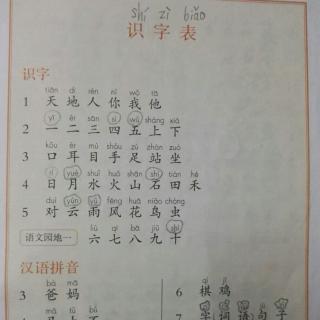 shí zì biǎo
识字表
识字
tiān dì rén nǐ wǒ tā
1 天地人你我他
yī èr sān sì wǔ shàng xià
2 一二三四五上下
kǒu ěr mù shǒu zú zhàn zuò
3 口耳目手足站坐
rì yuè shuǐ huǒ shān shí tián hé
4 日月水火山石田禾
duì yún yǔ fēng huā niǎo chóng
5 对云雨风花鸟虫
liù qī bā jiǔ shí
语文园地一 六七八九十
汉语拼音
bà mā
3 爸妈
qí jī
6 棋鸡
zì cí yǔ jù zǐ
7 字词语句子